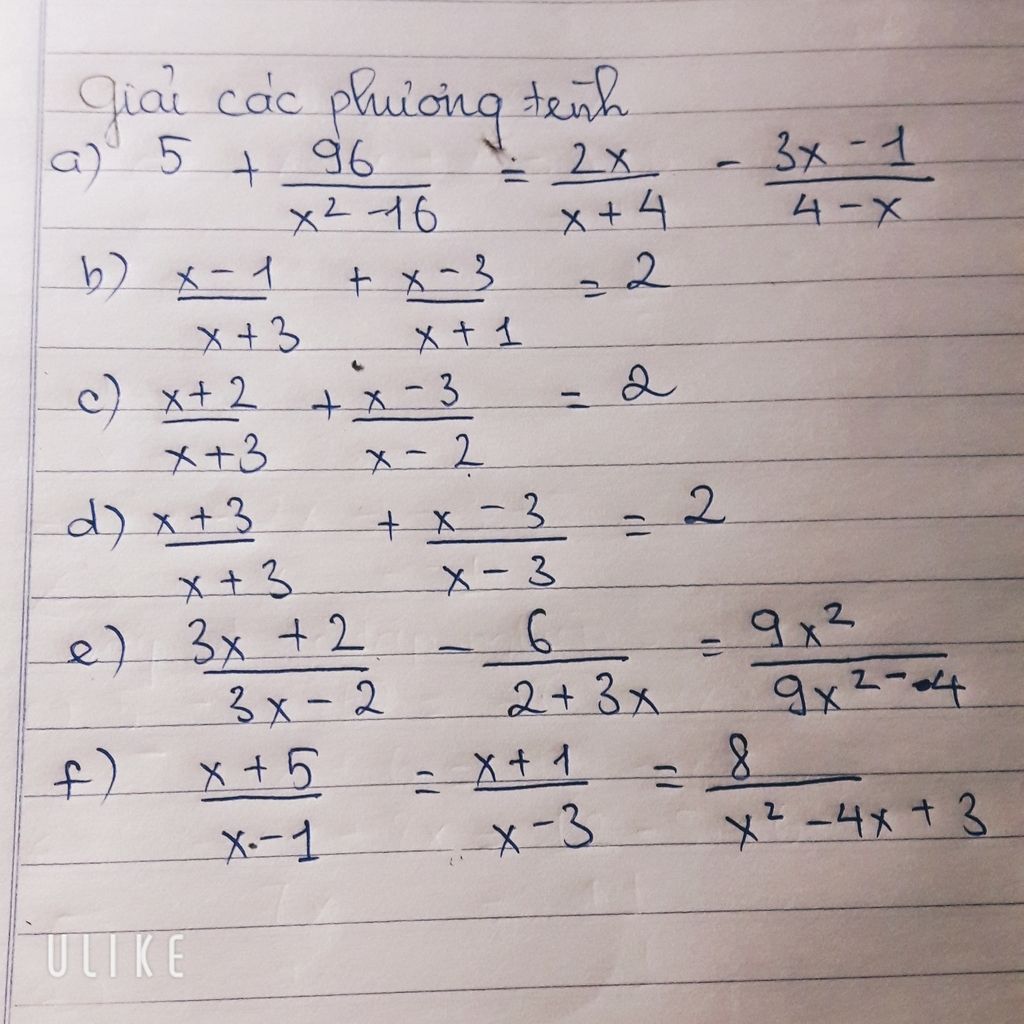 Giải các phương trình
a) 5 + 96/(x² - 16) = 2x/(x + 4) - (3x - 1)/(4 - x)
b) (x - 1)/(x + 3) + (x - 3)/(x + 1) = 2
c) (x + 2)/(x + 3) + (x - 3)/(x - 2) = 2
d) (x + 3)/(x + 3) + (x - 3)/(x - 3) = 2
e) (3x + 2)/(3x - 2) - 6/(2 + 3x) = 9x²/(9x² - 4)
f) (x + 5)/(x - 1) = (x + 1)/(x - 3) = 8/(x² - 4x + 3)
ULIKE